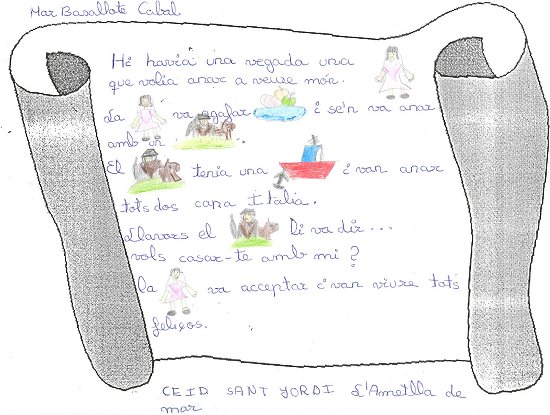 Mar Basallote Cabal
Hi havia una vegada una
que volia anar a veure món.
La va agafar i se'n va anar
amb un .
El tenia una i van anar
tots dos capa Itàlia.
Llavors el li va dir...
vols casar-te amb mi?
la va acceptar i van viure tots
feliços.
CEID SANT JORDI L'Ametlla de
mar